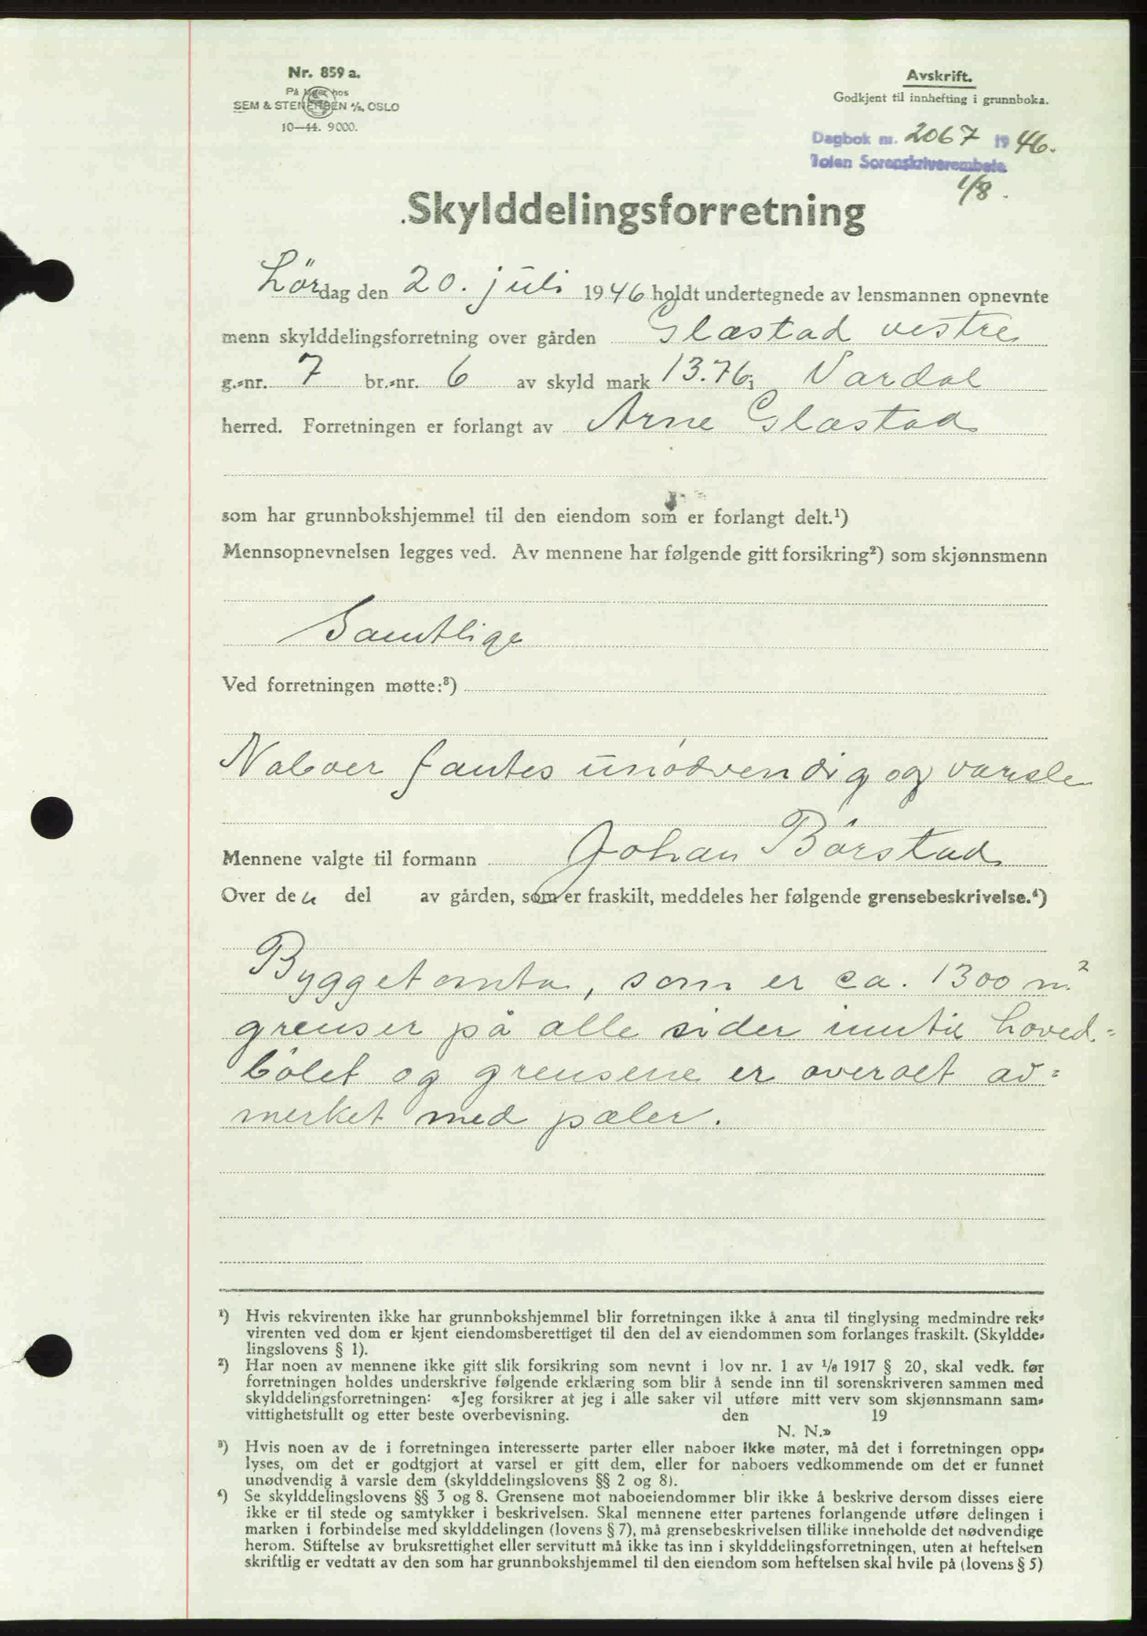 Nr. 859 a.
På lager hos
SEM & STENERSEN A/S, OSLO
10—44. 9000.
Avskrift.
Godkjent til innhefting i grunnboka.
Dagbok nr. 2067 1946.
Toten Sorenskriverembete
1/8.
Skylddelingsforretning
Lørdag den 20. juli 1946 holdt undertegnede av lensmannen opnevnte
menn skylddelingsforretning over gården Glæstad vestre
g.-nr. 7 br.-nr. 6 av skyld mark 13.76 i Vardal
herred. Forretningen er forlangt av Arne Glæstad
som har grunnbokshjemmel til den eiendom som er forlangt delt.¹)
Mennsopnevnelsen legges ved. Av mennene har følgende gitt forsikring²) som skjønnsmenn
Samtlige
Ved forretningen møtte:³)
Naboer fantes unødvendig og varsle
Mennene valgte til formann Johan Børstad
Over den del av gården, som er fraskilt, meddeles her følgende grensebeskrivelse.⁴)
Byggetomta, som er ca. 1300 m²
grenser på alle sider inntil hoved-
bølet og grensene er overalt av-
merket med pæler.
¹) Hvis rekvirenten ikke har grunnbokshjemmel blir forretningen ikke å anta til tinglysing medmindre rek-
virenten ved dom er kjent eiendomsberettiget til den del av eiendommen som forlanges fraskilt. (Skyldde-
lingslovens § 1).
²) Har noen av mennene ikke gitt slik forsikring som nevnt i lov nr. 1 av 1/6 1917 § 20, skal vedk. før
forretningen holdes underskrive følgende erklæring som blir å sende inn til sorenskriveren sammen med
skylddelingsforretningen: «Jeg forsikrer at jeg i alle saker vil utføre mitt verv som skjønnsmann sam-
vittighetsfullt og etter beste overbevisning. den 19
N. N.»
³) Hvis noen av de i forretningen interesserte parter eller naboer ikke møter, må det i forretningen opp-
lyses, om det er godtgjort at varsel er gitt dem, eller for naboers vedkommende om det er funnet
unødvendig å varsle dem (skylddelingslovens §§ 2 og 8).
⁴) Se skylddelingslovens §§ 3 og 8. Grensene mot naboeiendommer blir ikke å beskrive dersom disses eiere
ikke er til stede og samtykker i beskrivelsen. Skal mennene etter partenes forlangende utføre delingen i
marken i forbindelse med skylddelingen (lovens § 7), må grensebeskrivelsen tillike inneholde det nødvendige
herom. Stiftelse av bruksrettighet eller servitutt må ikke tas inn i skylddelingsforretningen, uten at heftelsen
skriftlig er vedtatt av den som har grunnbokshjemmel til den eiendom som heftelsen skal hvile på (lovens § 5)